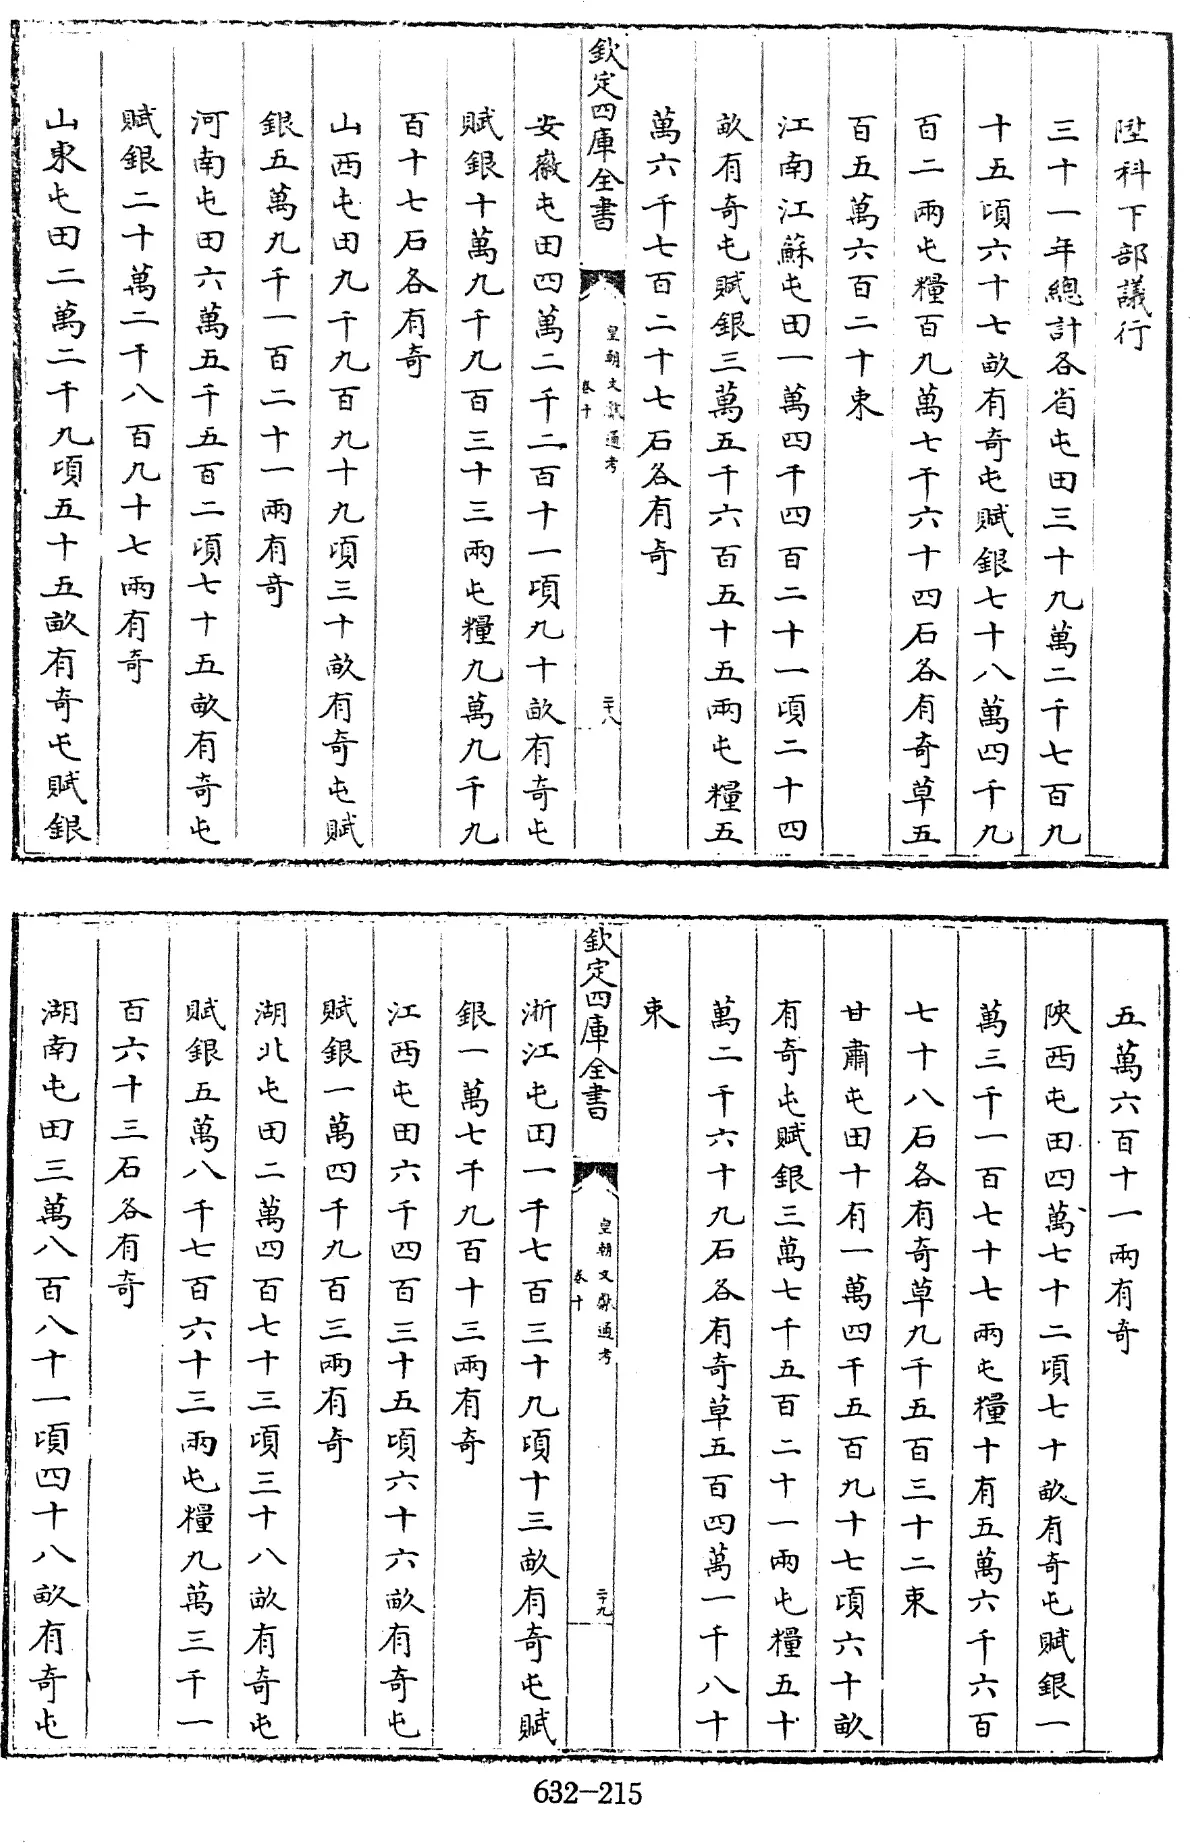 陞科下部議行
三十一年總計各省屯田三十九萬二千七百九
十五頃六十七畝有奇屯賦銀七十八萬四千九
百二兩屯糧百九萬七千六十四石各有奇草五
百五萬六百二十束
江南江蘇屯田一萬四千四百二十一頃二十四
畝有奇屯賦銀三萬五千六百五十五兩屯糧五
萬六千七百二十七石各有奇
欽定四庫全書
皇朝文獻通考
卷十
二十八
安徽屯田四萬二千二百十一頃九十畝有奇屯
賦銀十萬九千九百三十三兩屯糧九萬九千九
百十七石各有奇
山西屯田九千九百九十九頃三十畝有奇屯賦
銀五萬九千一百二十一兩有奇
河南屯田六萬五千五百二頃七十五畝有奇屯
賦銀二十萬二千八百九十七兩有奇
山東屯田二萬二千九頃五十五畝有奇屯賦銀
五萬六百十一兩有奇
陝西屯田四萬七十二頃七十畝有奇屯賦銀一
萬三千一百七十七兩屯糧十有五萬六千六百
七十八石各有奇草九千五百三十二束
甘肅屯田十有一萬四千五百九十七頃六十畝
有奇屯賦銀三萬七千五百二十一兩屯糧五十
萬二千六十九石各有奇草五百四萬一千八十
束
欽定四庫全書
皇朝文獻通考
卷十
二十九
浙江屯田一千七百三十九頃十三畝有奇屯賦
銀一萬七千九百十三兩有奇
江西屯田六千四百三十五頃六十六畝有奇屯
賦銀一萬四千九百三兩有奇
湖北屯田二萬四百七十三頃三十八畝有奇屯
賦銀五萬八千七百六十三兩屯糧九萬三千一
百六十三石各有奇
湖南屯田三萬八百八十一頃四十八畝有奇屯
632-215